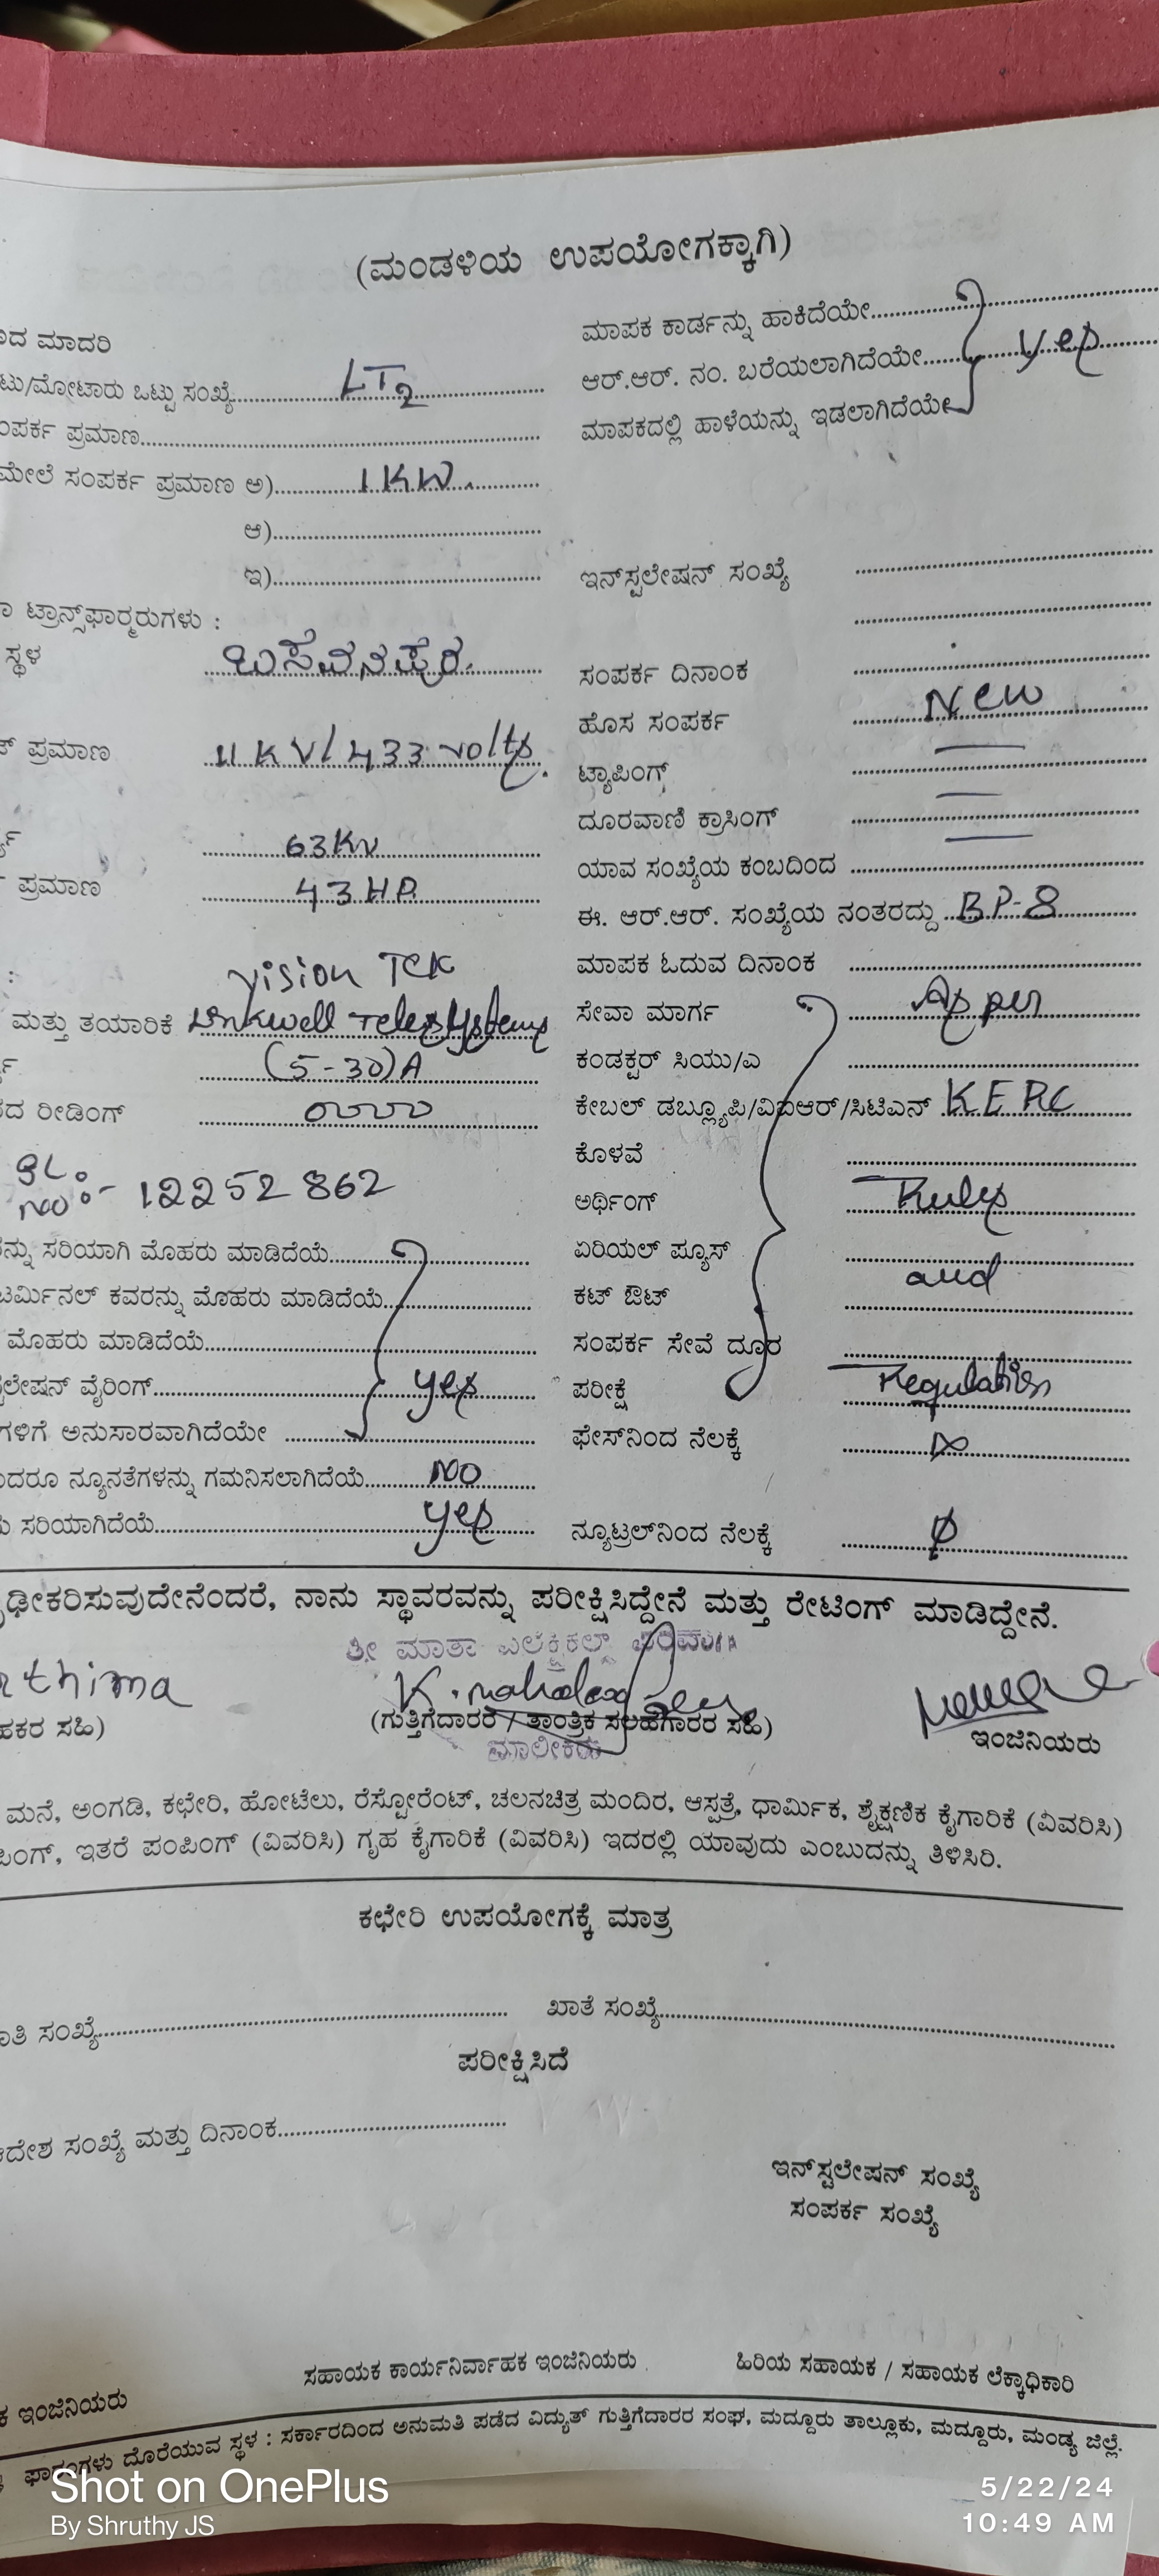 (ಮಂಡಳಿಯ ಉಪಯೋಗಕ್ಕಾಗಿ)
ಮಾದರಿ
ಟು/ಮೋಟಾರು ಒಟ್ಟು ಸಂಖ್ಯೆ LT2
ಪ್ರಮಾಣ
ಮೇಲೆ ಸಂಪರ್ಕ ಪ್ರಮಾಣ ಅ) 1 KW.
ಆ)
ಇ)
ಟ್ರಾನ್ಸ್‌ಫಾರ‍್ಮರುಗಳು :
ಸ್ಥಳ ಬಸವನಪುರ.
ಪ್ರಮಾಣ 11 KV/433 volts.
63Kv
ಪ್ರಮಾಣ 43 HP.
:
Vision Tek
ಮತ್ತು ತಯಾರಿಕೆ Linkwell Telesystems
(5-30)A
ರೀಡಿಂಗ್
SL.
No:- 12252862
ಸರಿಯಾಗಿ ಮೊಹರು ಮಾಡಿದೆಯೆ
ಟರ್ಮಿನಲ್ ಕವರನ್ನು ಮೊಹರು ಮಾಡಿದೆಯೆ
ಮೊಹರು ಮಾಡಿದೆಯೆ
ಲೇಷನ್ ವೈರಿಂಗ್ yes
ಗಳಿಗೆ ಅನುಸಾರವಾಗಿದೆಯೇ
ನ್ಯೂನತೆಗಳನ್ನು ಗಮನಿಸಲಾಗಿದೆಯೆ NO
ಸರಿಯಾಗಿದೆಯೆ yes
ಮಾಪಕ ಕಾರ್ಡನ್ನು ಹಾಕಿದೆಯೇ
ಆರ್.ಆರ್. ನಂ. ಬರೆಯಲಾಗಿದೆಯೇ yes
ಮಾಪಕದಲ್ಲಿ ಹಾಳೆಯನ್ನು ಇಡಲಾಗಿದೆಯೇ
ಇನ್‌ಸ್ಟಲೇಷನ್ ಸಂಖ್ಯೆ
ಸಂಪರ್ಕ ದಿನಾಂಕ
ಹೊಸ ಸಂಪರ್ಕ New
ಟ್ಯಾಪಿಂಗ್
ದೂರವಾಣಿ ಕ್ರಾಸಿಂಗ್
ಯಾವ ಸಂಖ್ಯೆಯ ಕಂಬದಿಂದ
ಈ. ಆರ್.ಆರ್. ಸಂಖ್ಯೆಯ ನಂತರದ್ದು BP-8
ಮಾಪಕ ಓದುವ ದಿನಾಂಕ
ಸೇವಾ ಮಾರ್ಗ As per
ಕಂಡಕ್ಟರ್ ಸಿಯು/ಎ
ಕೇಬಲ್ ಡಬ್ಲ್ಯೂಪಿ/ವಿಐಆರ್/ಸಿಟಿಎನ್ KERC
ಕೊಳವೆ
ಅರ್ಥಿಂಗ್ Rules
ಏರಿಯಲ್ ಪ್ಯೂಸ್
ಕಟ್ ಔಟ್ and
ಸಂಪರ್ಕ ಸೇವೆ ದೂರ
ಪರೀಕ್ಷೆ Regulation
ಫೇಸ್‌ನಿಂದ ನೆಲಕ್ಕೆ ∞
ನ್ಯೂಟ್ರಲ್‌ನಿಂದ ನೆಲಕ್ಕೆ
ಢೀಕರಿಸುವುದೇನೆಂದರೆ, ನಾನು ಸ್ಥಾವರವನ್ನು ಪರೀಕ್ಷಿಸಿದ್ದೇನೆ ಮತ್ತು ರೇಟಿಂಗ್ ಮಾಡಿದ್ದೇನೆ.
ಶ್ರೀ ಮಾತಾ ಎಲೆಕ್ಟ್ರಿಕಲ್ಸ್
thima
ಹಕರ ಸಹಿ) (ಗುತ್ತಿಗೆದಾರರ / ತಾಂತ್ರಿಕ ಸಲಹೆಗಾರರ ಸಹಿ) ಇಂಜಿನಿಯರು
ಮಾಲೀಕರು
ಮನೆ, ಅಂಗಡಿ, ಕಛೇರಿ, ಹೋಟೆಲು, ರೆಸ್ಟೋರೆಂಟ್, ಚಲನಚಿತ್ರ ಮಂದಿರ, ಆಸ್ಪತ್ರೆ, ಧಾರ್ಮಿಕ, ಶೈಕ್ಷಣಿಕ ಕೈಗಾರಿಕೆ (ವಿವರಿಸಿ)
ಪಿಂಗ್, ಇತರೆ ಪಂಪಿಂಗ್ (ವಿವರಿಸಿ) ಗೃಹ ಕೈಗಾರಿಕೆ (ವಿವರಿಸಿ) ಇದರಲ್ಲಿ ಯಾವುದು ಎಂಬುದನ್ನು ತಿಳಿಸಿರಿ.
ಕಛೇರಿ ಉಪಯೋಗಕ್ಕೆ ಮಾತ್ರ
ಸಂಖ್ಯೆ ಖಾತೆ ಸಂಖ್ಯೆ
ಪರೀಕ್ಷಿಸಿದೆ
ಸಂಖ್ಯೆ ಮತ್ತು ದಿನಾಂಕ
ಇನ್‌ಸ್ಟಲೇಷನ್ ಸಂಖ್ಯೆ
ಸಂಪರ್ಕ ಸಂಖ್ಯೆ
ಇಂಜಿನಿಯರು ಸಹಾಯಕ ಕಾರ್ಯನಿರ್ವಾಹಕ ಇಂಜಿನಿಯರು ಹಿರಿಯ ಸಹಾಯಕ / ಸಹಾಯಕ ಲೆಕ್ಕಾಧಿಕಾರಿ
ಫಾರಂಗಳು ದೊರೆಯುವ ಸ್ಥಳ : ಸರ್ಕಾರದಿಂದ ಅನುಮತಿ ಪಡೆದ ವಿದ್ಯುತ್ ಗುತ್ತಿಗೆದಾರರ ಸಂಘ, ಮದ್ದೂರು ತಾಲ್ಲೂಕು, ಮದ್ದೂರು, ಮಂಡ್ಯ ಜಿಲ್ಲೆ.
Shot on OnePlus
By Shruthy JS
5/22/24
10:49 AM